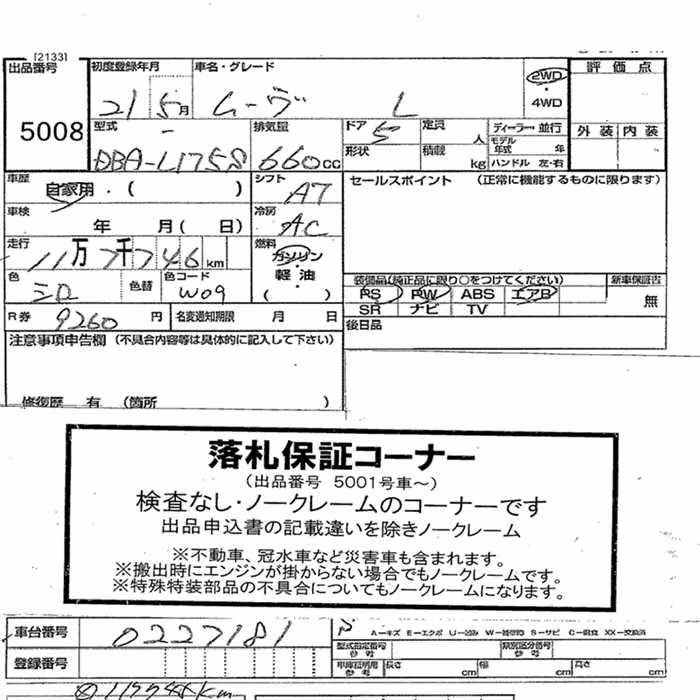 [2133]
出品番号 初度登録年月 車名・グレード 評価点
5008 21 5月 ムーヴ L 2WD・4WD 外装 内装
型式 排気量 ドア 定員 ディーラー・並行
DBA-L175S 660cc 5 人 モデル年式 年
形状 積載 kg ハンドル 左・右
車歴 自家用・( ) シフト AT セールスポイント (正常に機能するものに限ります)
車検 年 月( 日) 冷房 AC
走行 11万7千746km 燃料 ガソリン・軽油 ( )
色 シロ 色替 色コード W09
装備品(純正品に限り○をつけてください) 新車保証書
PS PW ABS エアB 無
SR ナビ TV
R券 9260円 名変通知期限 月 日 後日品
注意事項申告欄 (不具合内容等は具体的に記入して下さい)
修復歴 有 (箇所 )
落札保証コーナー
(出品番号 5001号車～)
検査なし・ノークレームのコーナーです
出品申込書の記載違いを除きノークレーム
※不動車、冠水車など災害車も含まれます。
※搬出時にエンジンが掛からない場合でもノークレームです。
※特殊特装部品の不具合についてもノークレームになります。
車台番号 0227181 A－キズ E－エクボ U－凹み W－補修跡 S－サビ C－腐食 XX－交換済
型式指定番号参考 類別区分番号参考
登録番号 車庫証明用参考 長さ cm 幅 cm 高さ cm